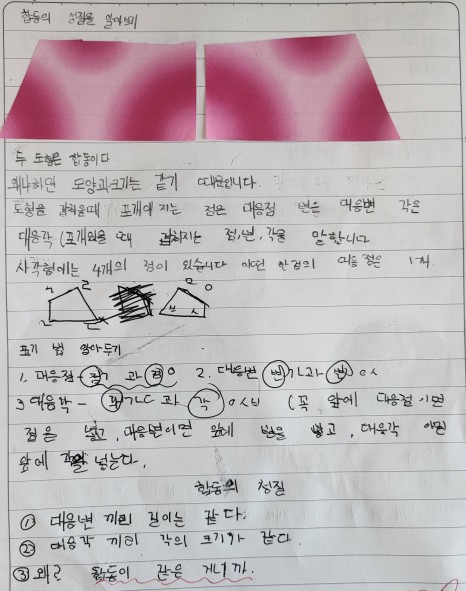 합동의 성질을 알아보기
두 도형은 합동이다
왜냐하면 모양과크기는 같기 때문입니다.
도형을 겹쳤을때 포개어 지는 점은 대응점 변은 대응변 각은
대응각 (포개었을 때 겹쳐지는 점,변,각을 말합니다
사각형에는 4개의 점이 있습니다 어떤 한점의 대응 점은 1개
ㄱ ㄹ ㄴ ㄷ ㅁ ㅇ ㅂ ㅅ
표기 법 알아두기
1. 대응점- 점ㄱ 과 점ㅇ 2. 대응변 변ㄱㄴ과 변ㅇㅅ
3 대응각 - 각ㄱㄴㄷ과 각ㅇㅅㅂ (꼭 앞에 대응점 이면
점을 넣고, 대응변이면 앞에 변을 넣고, 대응각 이면
앞에 각을 넣는다.
합동의 성질
① 대응변 끼리 길이는 같다.
② 대응각 끼리 각의 크기가 같다.
③ 왜? 합동이 같은 거니까.